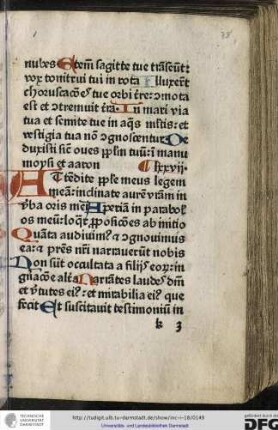 nubes Etem̄ sagitte tue trāseūt:
vox tonitrui tui in rota Illuxerūt
choruscacōes tue orbi t̄re: ɔmota
est et ɔtremuit t̄ra. In mari via
tua et semite tue in aq̄s ml̄tis: et
vestigia tua nō ɔgnoscentur. De
duxisti sic̄ oues pp̄lm tuū: ī manu
moysi et aaron lxxvij.
Attēdite pp̄le meus legem
meā: inclinate aurē vr̄am in
v̄ba oris mei Aperiā in parabol̄
os meū: loq̄r ꝓposicōes ab initio
Quāta audiuim9 ⁊ ɔgnouimus
ea: ⁊ pr̄es nr̄i narrauerūt nobis
Non sūt occultata a filijs eorꝝ: in
gn̄acōe alt̄a Narrātes laudes dn̄i
et v̄tutes ei9: et mirabilia ei9 que
fecit Et suscitauit testimoniū in
k 3
http://tudigit.ulb.tu-darmstadt.de/show/inc-i-18/0149
Universitäts- und Landesbibliothek Darmstadt